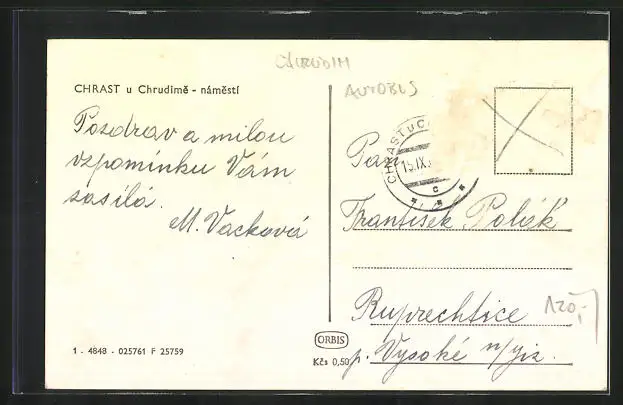 CHRUDIM
AUTOBUS
CHRAST u Chrudimě - náměstí
Pozdrav a milou
vzpomínku Vám
zasílá.
M. Vacková
CHRAST u C
15.IX.
c
Pan
František Polák
Ruprechtice
p. Vysoké n/Jiz.
120,-
ORBIS
Kčs 0,50
1 - 4848 - 025761 F 25759